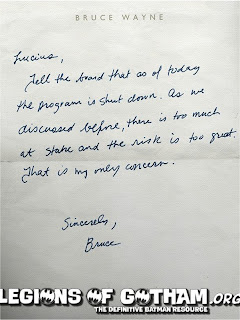 BRUCE WAYNE
Lucius,
Tell the board that as of today
the program is shut down. As we
discussed before, there is too much
at stake and the risk is too great.
That is my only concern.
Sincerely,
Bruce
LEGIONS OF GOTHAM.ORG
THE DEFINITIVE BATMAN RESOURCE